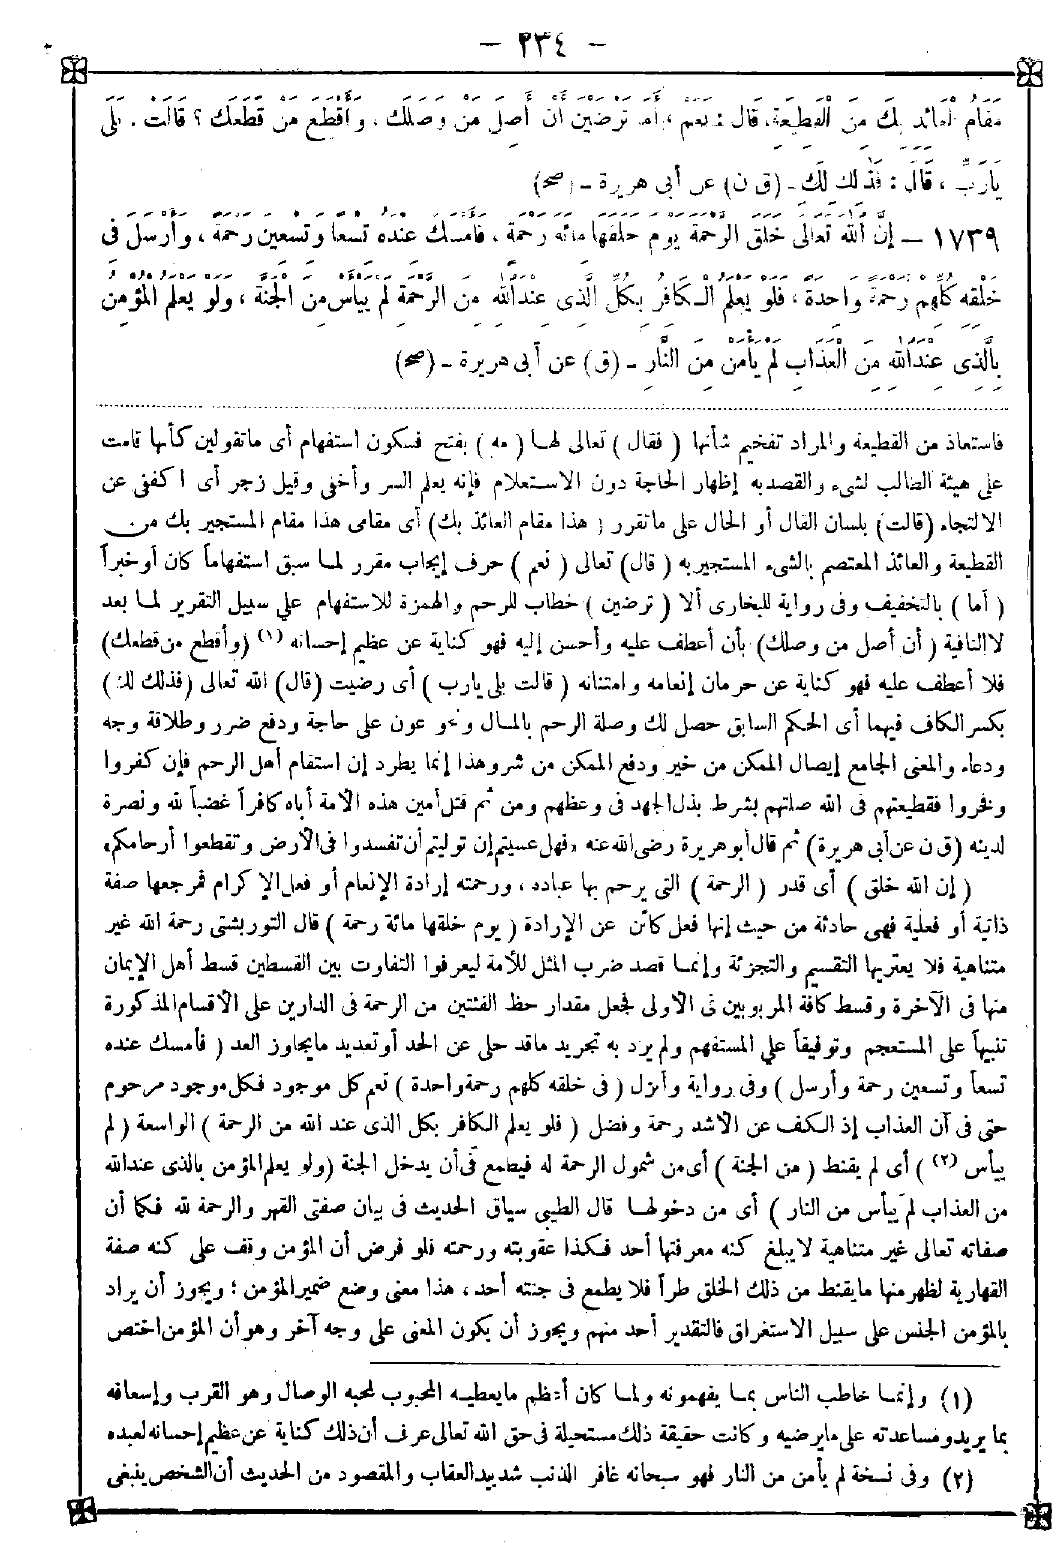 - ٢٣٤ -
مَقَامُ الْعَائِذِ بِكَ مِنَ الْقَطِيعَةِ، قَالَ: نَعَمْ، أَمَا تَرْضَيْنَ أَنْ أَصِلَ مَنْ وَصَلَكِ، وَأَقْطَعَ مَنْ قَطَعَكِ؟ قَالَتْ. بَلَى
يَارَبِّ، قَالَ: فَذٰلِكِ لَكِ - (ق ن) عن أبى هريرة - (صح)
١٧٣٩ - إِنَّ اللهَ تَعَالَى خَلَقَ الرَّحْمَةَ يَوْمَ خَلَقَهَا مِائَةَ رَحْمَةٍ، فَأَمْسَكَ عِنْدَهُ تِسْعًا وَتِسْعِينَ رَحْمَةً، وَأَرْسَلَ فِى
خَلْقِهِ كُلِّهِمْ رَحْمَةً وَاحِدَةً، فَلَوْ يَعْلَمُ الْكَافِرُ بِكُلِّ الَّذِى عِنْدَ اللهِ مِنَ الرَّحْمَةِ لَمْ يَيْأَسْ مِنَ الْجَنَّةِ، وَلَوْ يَعْلَمُ الْمُؤْمِنُ
بِالَّذِى عِنْدَ اللهِ مِنَ الْعَذَابِ لَمْ يَأْمَنْ مِنَ النَّارِ - (ق) عن أبى هريرة - (صح)
فاستعاذ من القطيعة والمراد تفخيم شأنها (فقال) تعالى لها (مه) بفتح فسكون استفهام أى ماتقولين كأنها قامت
على هيئة الطالب لشىء والقصد به إظهار الحاجة دون الاستعلام فإنه يعلم السر وأخفى وقيل زجر أى اكفنى عن
الالتجاء (قالت) بلسان القال أو الحال على ماتقرر (هذا مقام العائذ بك) أى مقامى هذا مقام المستجير بك من
القطيعة والعائذ المعتصم بالشىء المستجير به (قال) تعالى (نعم) حرف إيجاب مقرر لما سبق استفهاماً كان أو خبراً
(أما) بالتخفيف وفى رواية للبخارى ألا (ترضين) خطاب للرحم والهمزة للاستفهام على سبيل التقرير لما بعد
لا النافية (أن أصل من وصلك) بأن أعطف عليه وأحسن إليه فهو كناية عن عظيم إحسانه (١) (وأقطع من قطعك)
فلا أعطف عليه فهو كناية عن حرمان إنعامه وامتنانه (قالت بلى يارب) أى رضيت (قال) الله تعالى (فذلك لك)
بكسر الكاف فيهما أى الحكم السابق حصل لك وصلة الرحم بالمال ونحو عون على حاجة ودفع ضرر وطلاقة وجه
ودعاء والمعنى الجامع إيصال الممكن من خير ودفع الممكن من شر وهذا إنما يطرد إن استقام أهل الرحم فإن كفروا
وفجروا فقطيعتهم فى الله صلتهم بشرط بذل الجهد فى وعظهم ومن ثم قتل أمين هذه الأمة أباه كافراً غضباً لله ونصرة
لدينه (ق ن عن أبى هريرة) ثم قال أبو هريرة رضى الله عنه «فهل عسيتم إن توليتم أن تفسدوا فى الأرض وتقطعوا أرحامكم»
(إن الله خلق) أى قدر (الرحمة) التى يرحم بها عباده، ورحمته إرادة الإنعام أو فعل الإكرام فمرجعها صفة
ذاتية أو فعلية فهى حادثة من حيث إنها فعل كائن عن الإرادة (يوم خلقها مائة رحمة) قال التوربشتى رحمة الله غير
متناهية فلا يعتريها التقسيم والتجزئة وإنما قصد ضرب المثل للأمة ليعرفوا التفاوت بين القسطين قسط أهل الإيمان
منها فى الآخرة وقسط كافة المربوبين فى الأولى فجعل مقدار حظ الفئتين من الرحمة فى الدارين على الأقسام المذكورة
تنبيهاً على المستعجم وتوفيقاً على المستفهم ولم يرد به تجريد ماقد حلى عن الحد أو تعديد مايجاوز العد (فأمسك عنده
تسعاً وتسعين رحمة وأرسل) وفى رواية وأنزل (فى خلقه كلهم رحمة واحدة) تعم كل موجود فكل موجود مرحوم
حتى فى آن العذاب إذ الكف عن الأشد رحمة وفضل (فلو يعلم الكافر بكل الذى عند الله من الرحمة) الواسعة (لم
ييأس (٢)) أى لم يقنط (من الجنة) أى من شمول الرحمة له فيطمع فى أن يدخل الجنة (ولو يعلم المؤمن بالذى عند الله
من العذاب لم ييأس من النار) أى من دخولها قال الطيبى سياق الحديث فى بيان صفتى القهر والرحمة لله فكما أن
صفاته تعالى غير متناهية لايبلغ كنه معرفتها أحد فكذا عقوبته ورحمته فلو فرض أن المؤمن وقف على كنه صفة
القهارية لظهر منها مايقنط من ذلك الخلق طراً فلا يطمع فى جنته أحد، هذا معنى وضع ضمير المؤمن؛ ويجوز أن يراد
بالمؤمن الجنس على سبيل الاستغراق فالتقدير أحد منهم ويجوز أن يكون المعنى على وجه آخر وهو أن المؤمن اختص
(١) وإنما خاطب الناس بما يفهمونه ولما كان أعظم مايعطيه المحبوب لمحبه الوصال وهو القرب وإسعافه
بما يريد ومساعدته على مايرضيه وكانت حقيقة ذلك مستحيلة فى حق الله تعالى عرف أن ذلك كناية عن عظيم إحسانه لعبده
(٢) وفى نسخة لم يأمن من النار فهو سبحانه غافر الذنب شديد العقاب والمقصود من الحديث أن الشخص ينبغى